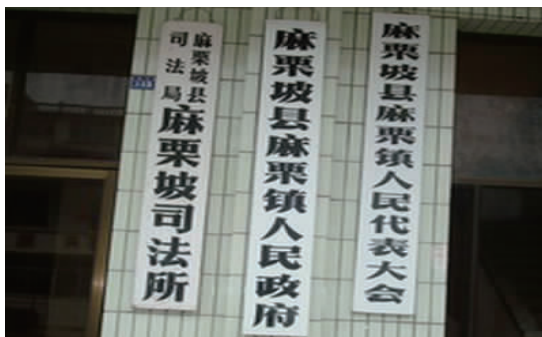 麻栗坡县
司法局
麻栗坡司法所
麻栗坡县麻栗镇人民政府
麻栗坡县麻栗镇人民代表大会